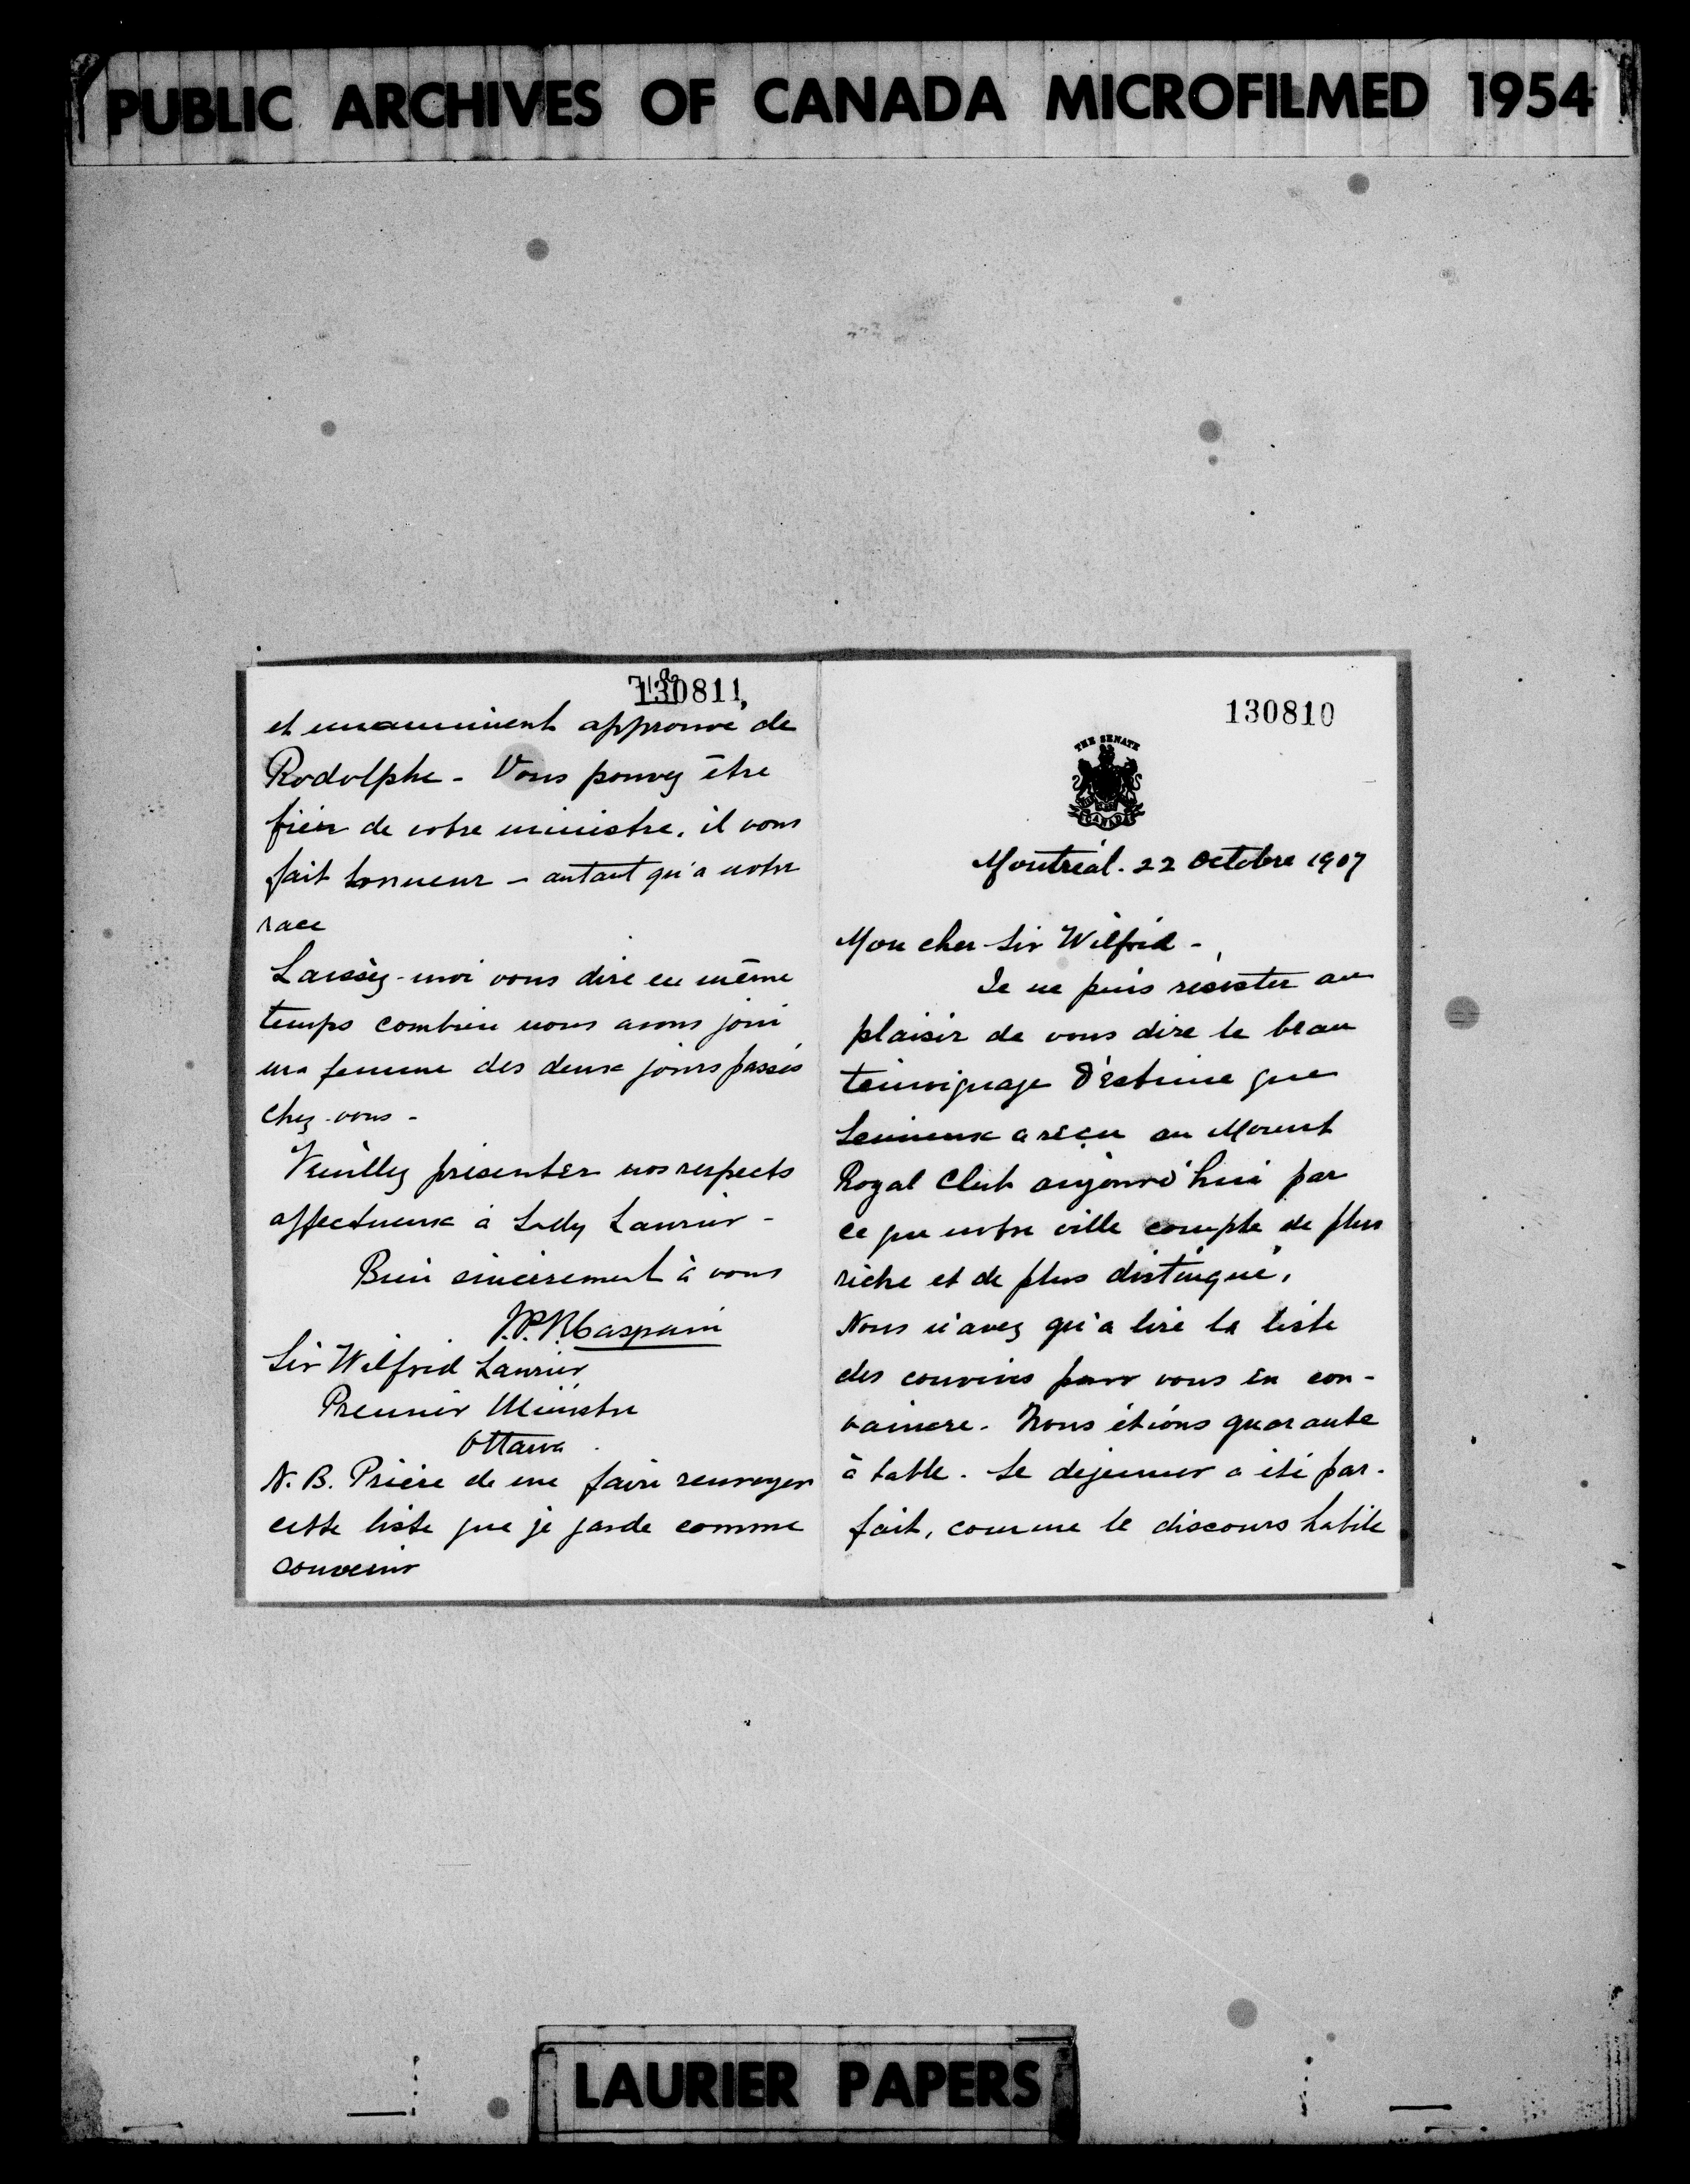 PUBLIC ARCHIVES OF CANADA MICROFILMED 1954
130810
THE SENATE
CANADA
Montréal. 22 Octobre 1907
Mon cher Sir Wilfrid -
Je ne puis résister au
plaisir de vous dire le beau
témoignage d'estime que
Lemieux a reçu au Mount
Royal Club aujourd'hui par
ce que notre ville compte de plus
riche et de plus distingué.
Vous n'avez qu'à lire la liste
des convives pour vous en con-
vaincre. Nous étions quarante
à table. Le dejeuner a été par-
fait, comme le discours habile
130811
et unanimement approuvé de
Rodolphe - Vous pouvez être
fier de votre ministre, il vous
fait honneur - autant qu'à notre
race
Laissez-moi vous dire en même
temps combien nous avons joui
ma femme des deux jours passés
chez-vous -
Veuillez présenter nos respects
affectueux à Lady Laurier -
Bien sincèrement à vous
J.P.B. Casgrain
Sir Wilfrid Laurier
Premier Ministre
Ottawa.
N.B. Prière de me faire renvoyer
cette liste que je garde comme
souvenir
LAURIER PAPERS